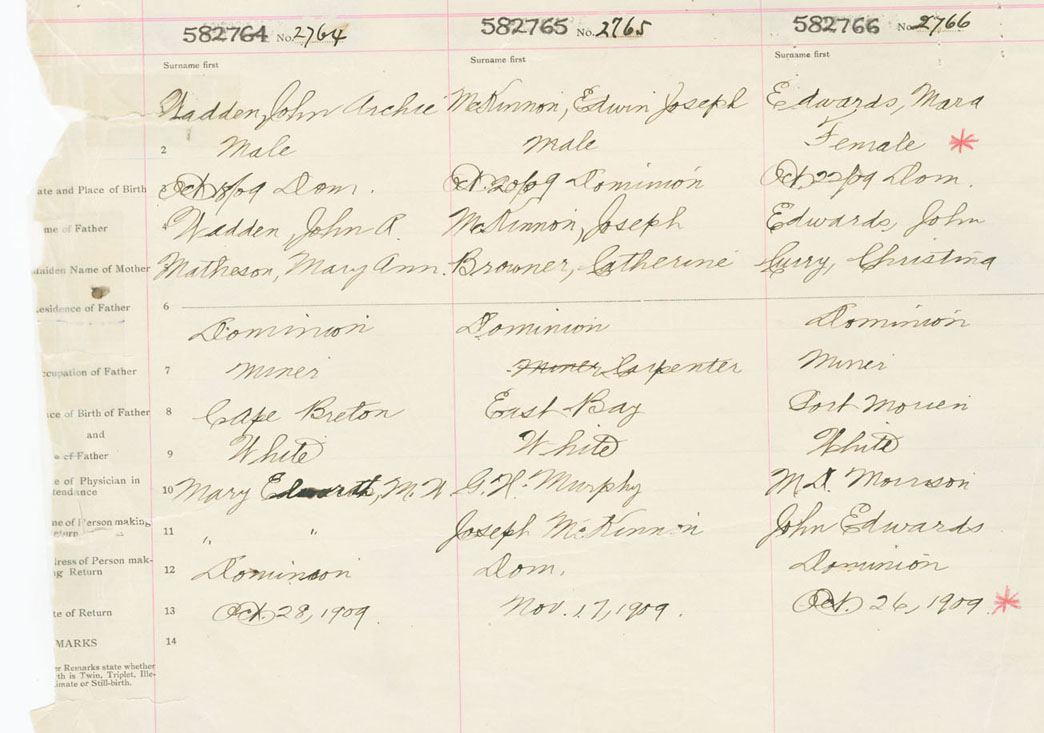 582764 No. 2764 582765 No. 2765 582766 No. 2766
Surname first Surname first Surname first
Wadden, John Archie McKinnon, Edwin Joseph Edwards, Mara
2 Male Male Female *
ate and Place of Birth 3 Oct 8/09 Dom. Oct. 20/09 Dominion Oct. 22/09 Dom.
me of Father 4 Wadden, John A. McKinnon, Joseph Edwards, John
aiden Name of Mother Matheson, Mary Ann. Browner, Catherine Curry, Christina
esidence of Father 6
Dominion Dominion Dominion
ccupation of Father 7 Miner Miner Carpenter Miner
ce of Birth of Father 8 Cape Breton East Bay Port Morien
and
e of Father 9 White White White
e of Physician in
tendance 10 Mary Edwards, M.W G. H. Murphy M.D. Morrison
me of Person making
eturn 11 " " Joseph McKinnon John Edwards
dress of Person mak-
ng Return 12 Dominion Dom. Dominion
te of Return 13 Oct. 28, 1909 Nov. 17, 1909. Oct. 26, 1909 *
MARKS 14
er Remarks state whether
th is Twin, Triplet, Ille-
imate or Still-birth.